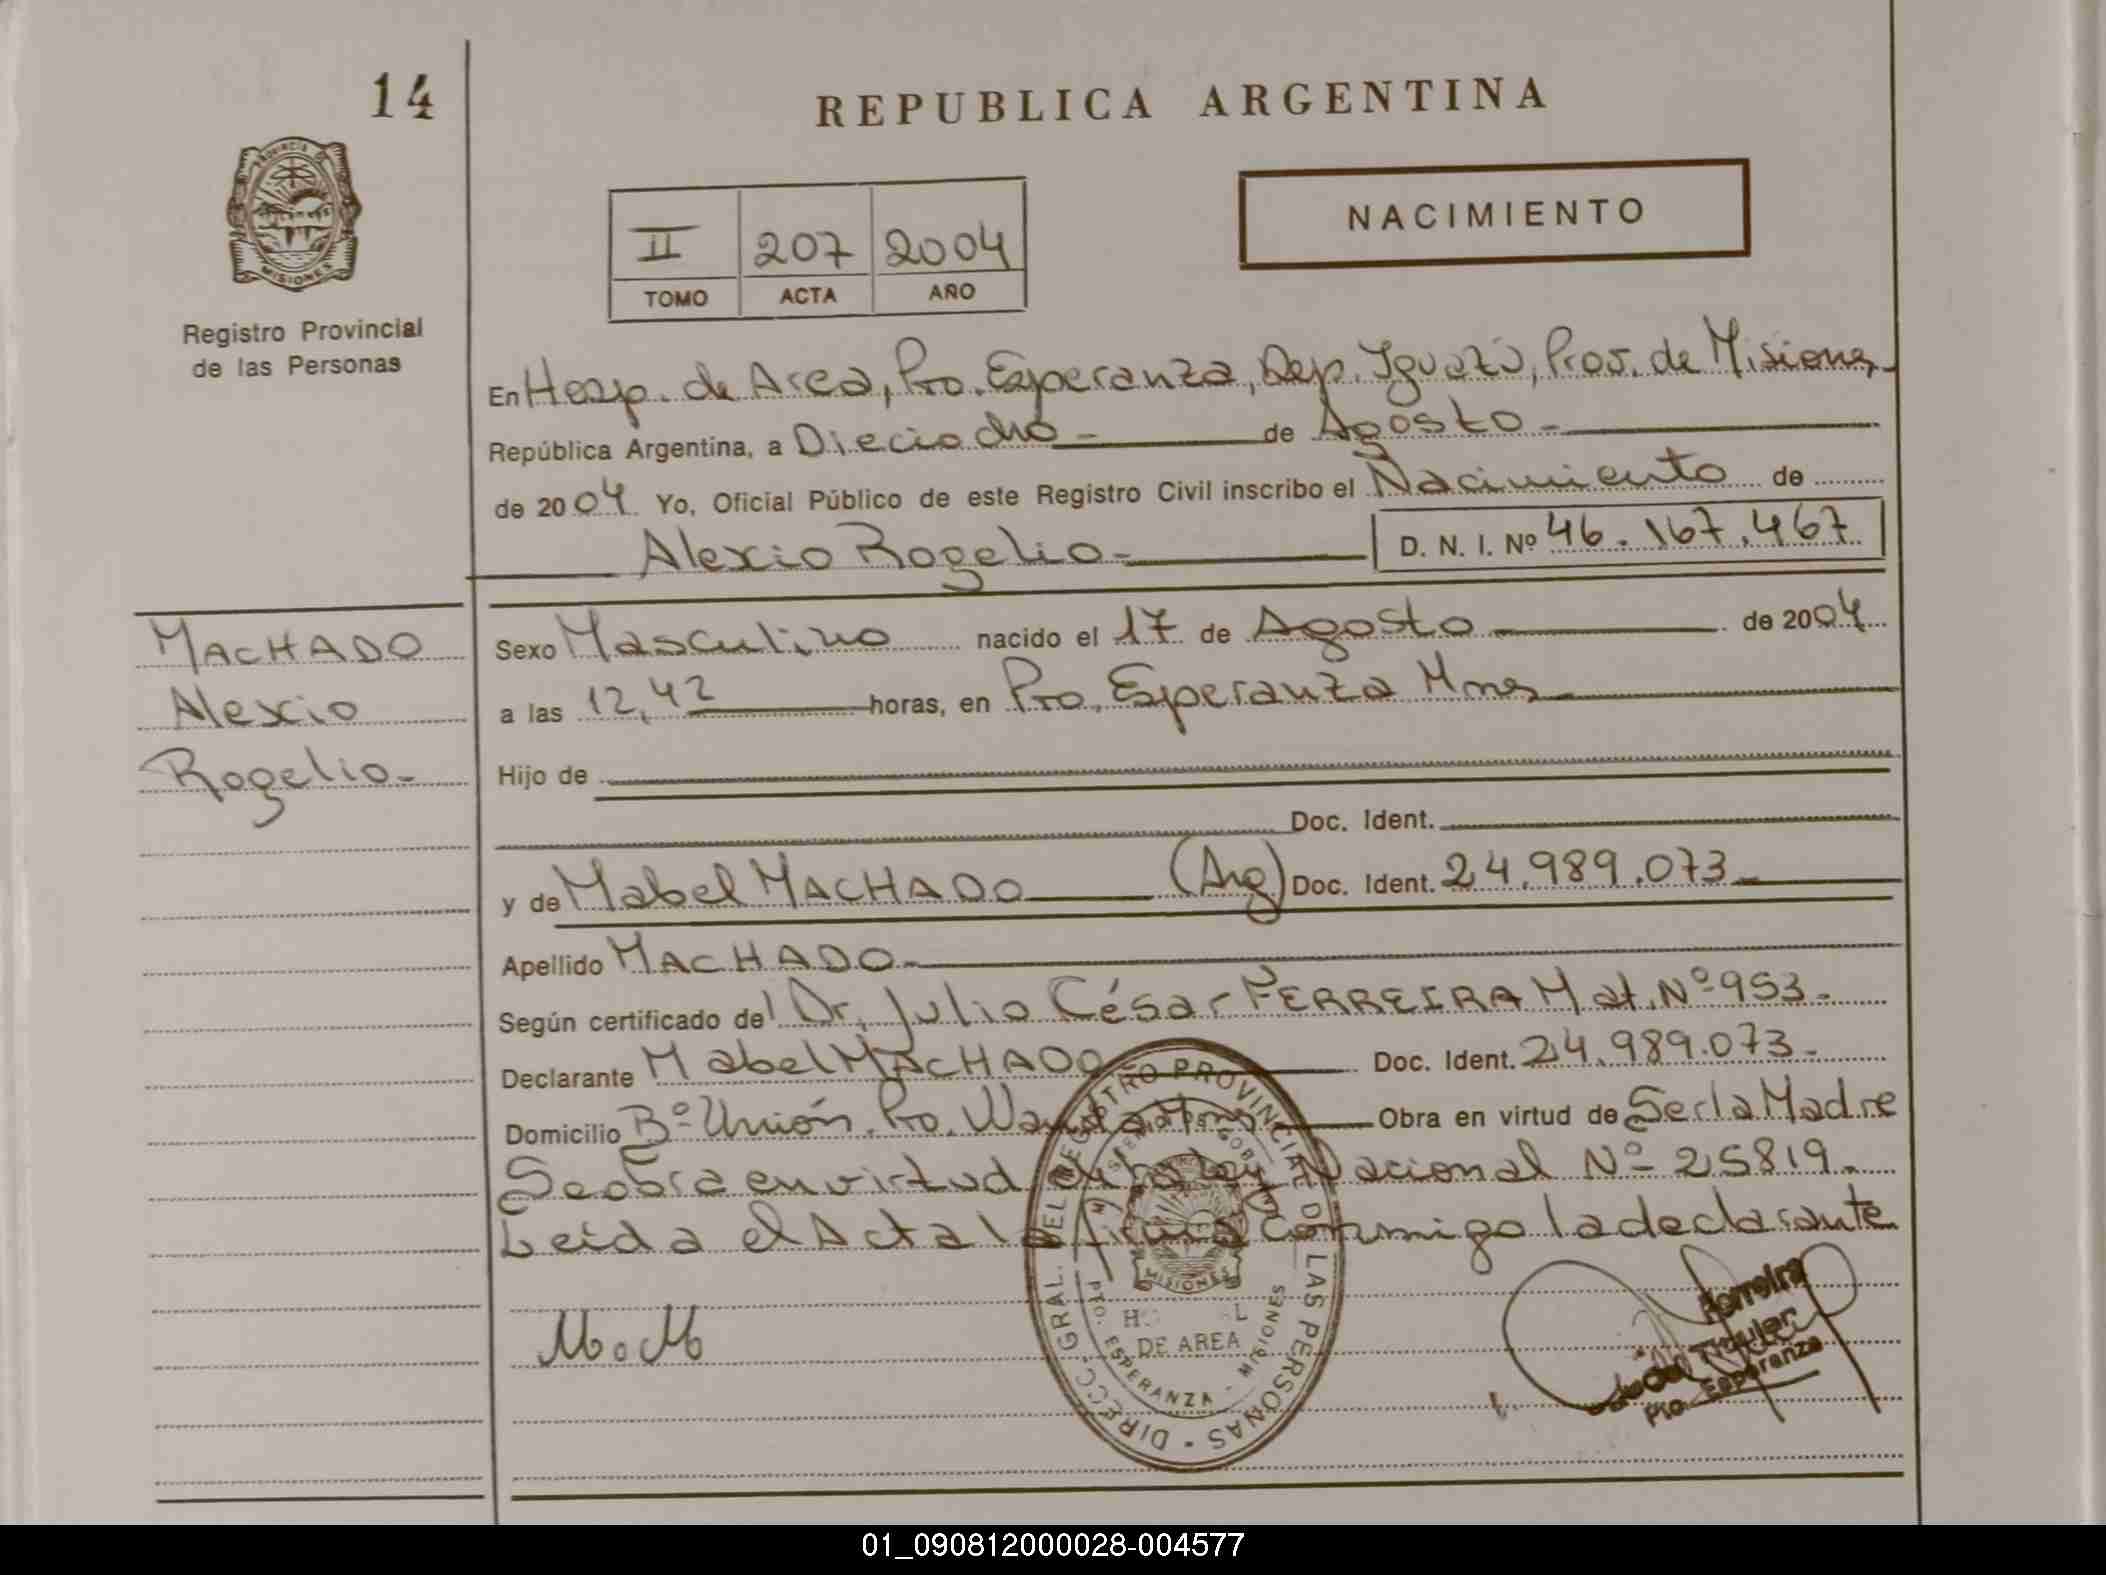 14
REPUBLICA ARGENTINA
NACIMIENTO
II 207 2004
TOMO ACTA AÑO
PROVINCIA DE
MISIONES
Registro Provincial
de las Personas
En Hosp. de Area, Pto. Esperanza, Dep. Iguazú, Prov. de Misiones
República Argentina, a Dieciocho - de Agosto -
de 2004 Yo, Oficial Público de este Registro Civil inscribo el Nacimiento de
Alexio Rogelio - D. N. I. Nº 46.167.467
MACHADO
Alexio
Rogelio -
Sexo Masculino nacido el 17 de Agosto de 2004
a las 12,42 horas, en Pto. Esperanza Mnes
Hijo de
Doc. Ident.
y de Mabel MACHADO (Arg) Doc. Ident. 24.989.073
Apellido MACHADO -
Según certificado del Dr. Julio César FERREIRA Mat. Nº 953 -
Declarante Mabel MACHADO Doc. Ident. 24.989.073 -
Domicilio Bº Unión. Pto. Wanda Mnes Obra en virtud de Ser la Madre
Se obra en virtud de la Ley Nacional Nº 25819 -
Leida el Acta la firma conmigo la declarante
M. M
DIRECC. GRAL. DEL REGISTRO PROVINCIAL DE LAS PERSONAS
MISIONES
DE AREA
PTO. ESPERANZA - MISIONES
Ferreira
Titular
Pto. Esperanza
01_090812000028-004577